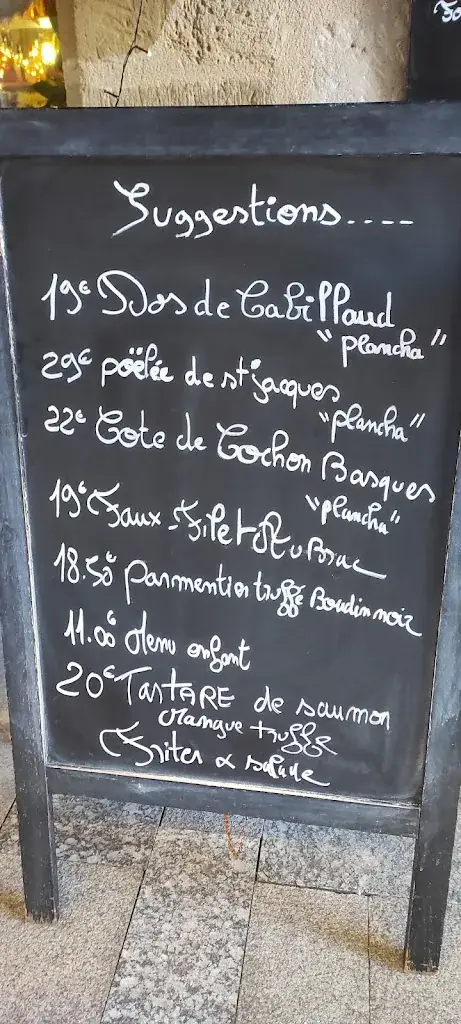 Suggestions....
19€ Dos de Cabillaud
"plancha"
29€ poëlée de st jacques
"plancha"
22€ Cote de Cochon Basques
"plancha"
19€ Faux-Filet Aubrac
18.50€ parmentier truffé Boudin noir
11.00€ Menu enfant
20€ TARTARE de saumon
mangue truffe
Frites & salade
50